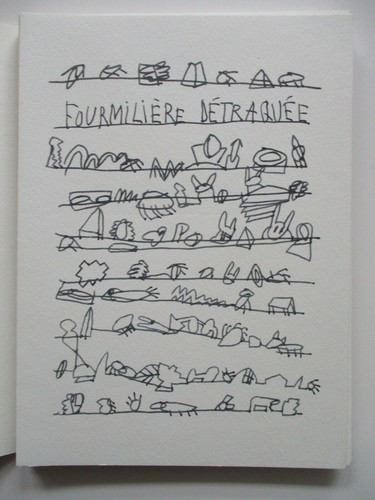 FOURMILIÈRE DÉTRAQUÉE